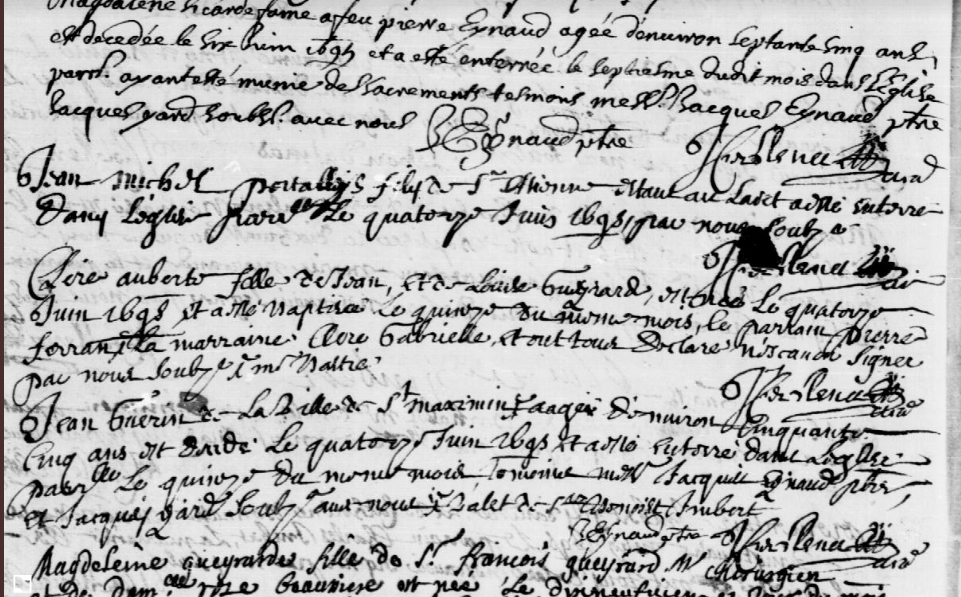 Magdalene Ricarde fame a feu pierre Eynaud agée denuiron septante sinq ans
est decedée le six Iuin 1695 et a esté enterrée le septiesme dudit mois dans l'Eglise
parr.le ayant esté munie des sacrements tesmoins mess.e Iacques Eynaud ptre
Iacques gard soubs. auec nous
Eynaud ptre
Jean michel portallys fils de Sr Estienne estant au laict a esté enterré
dans l'eglise parr.lle le quatorze Iuin 1695 par nous soubz.e
Clere auberte fille de Jean, et de Louise Gueyrard, est née le quatorze
Juin 1695 et a esté baptisée le quinze du mesme mois, le parrain pierre
ferran et la marraine Clere Gabrielle, et ont tous declaré ne scauoir signer
par nous soubz.e
Jean Guerin de la Ville de St maximin aagé d'enuiron Cinquante
Cinq ans est decedé le quatorze Juin 1695 et a esté enterré dans l'eglise
parr.lle le quinze du mesme mois temoins messe Jacques Eynaud ptre,
et Jacques gard soubz. auec nous et valet de Sr Benoist Imbert
Eynaud ptre
Magdeleine gueyrarde fille de Sr françois gueyrard Me chirurgien
et de dam.lle est née le dixneufuieme